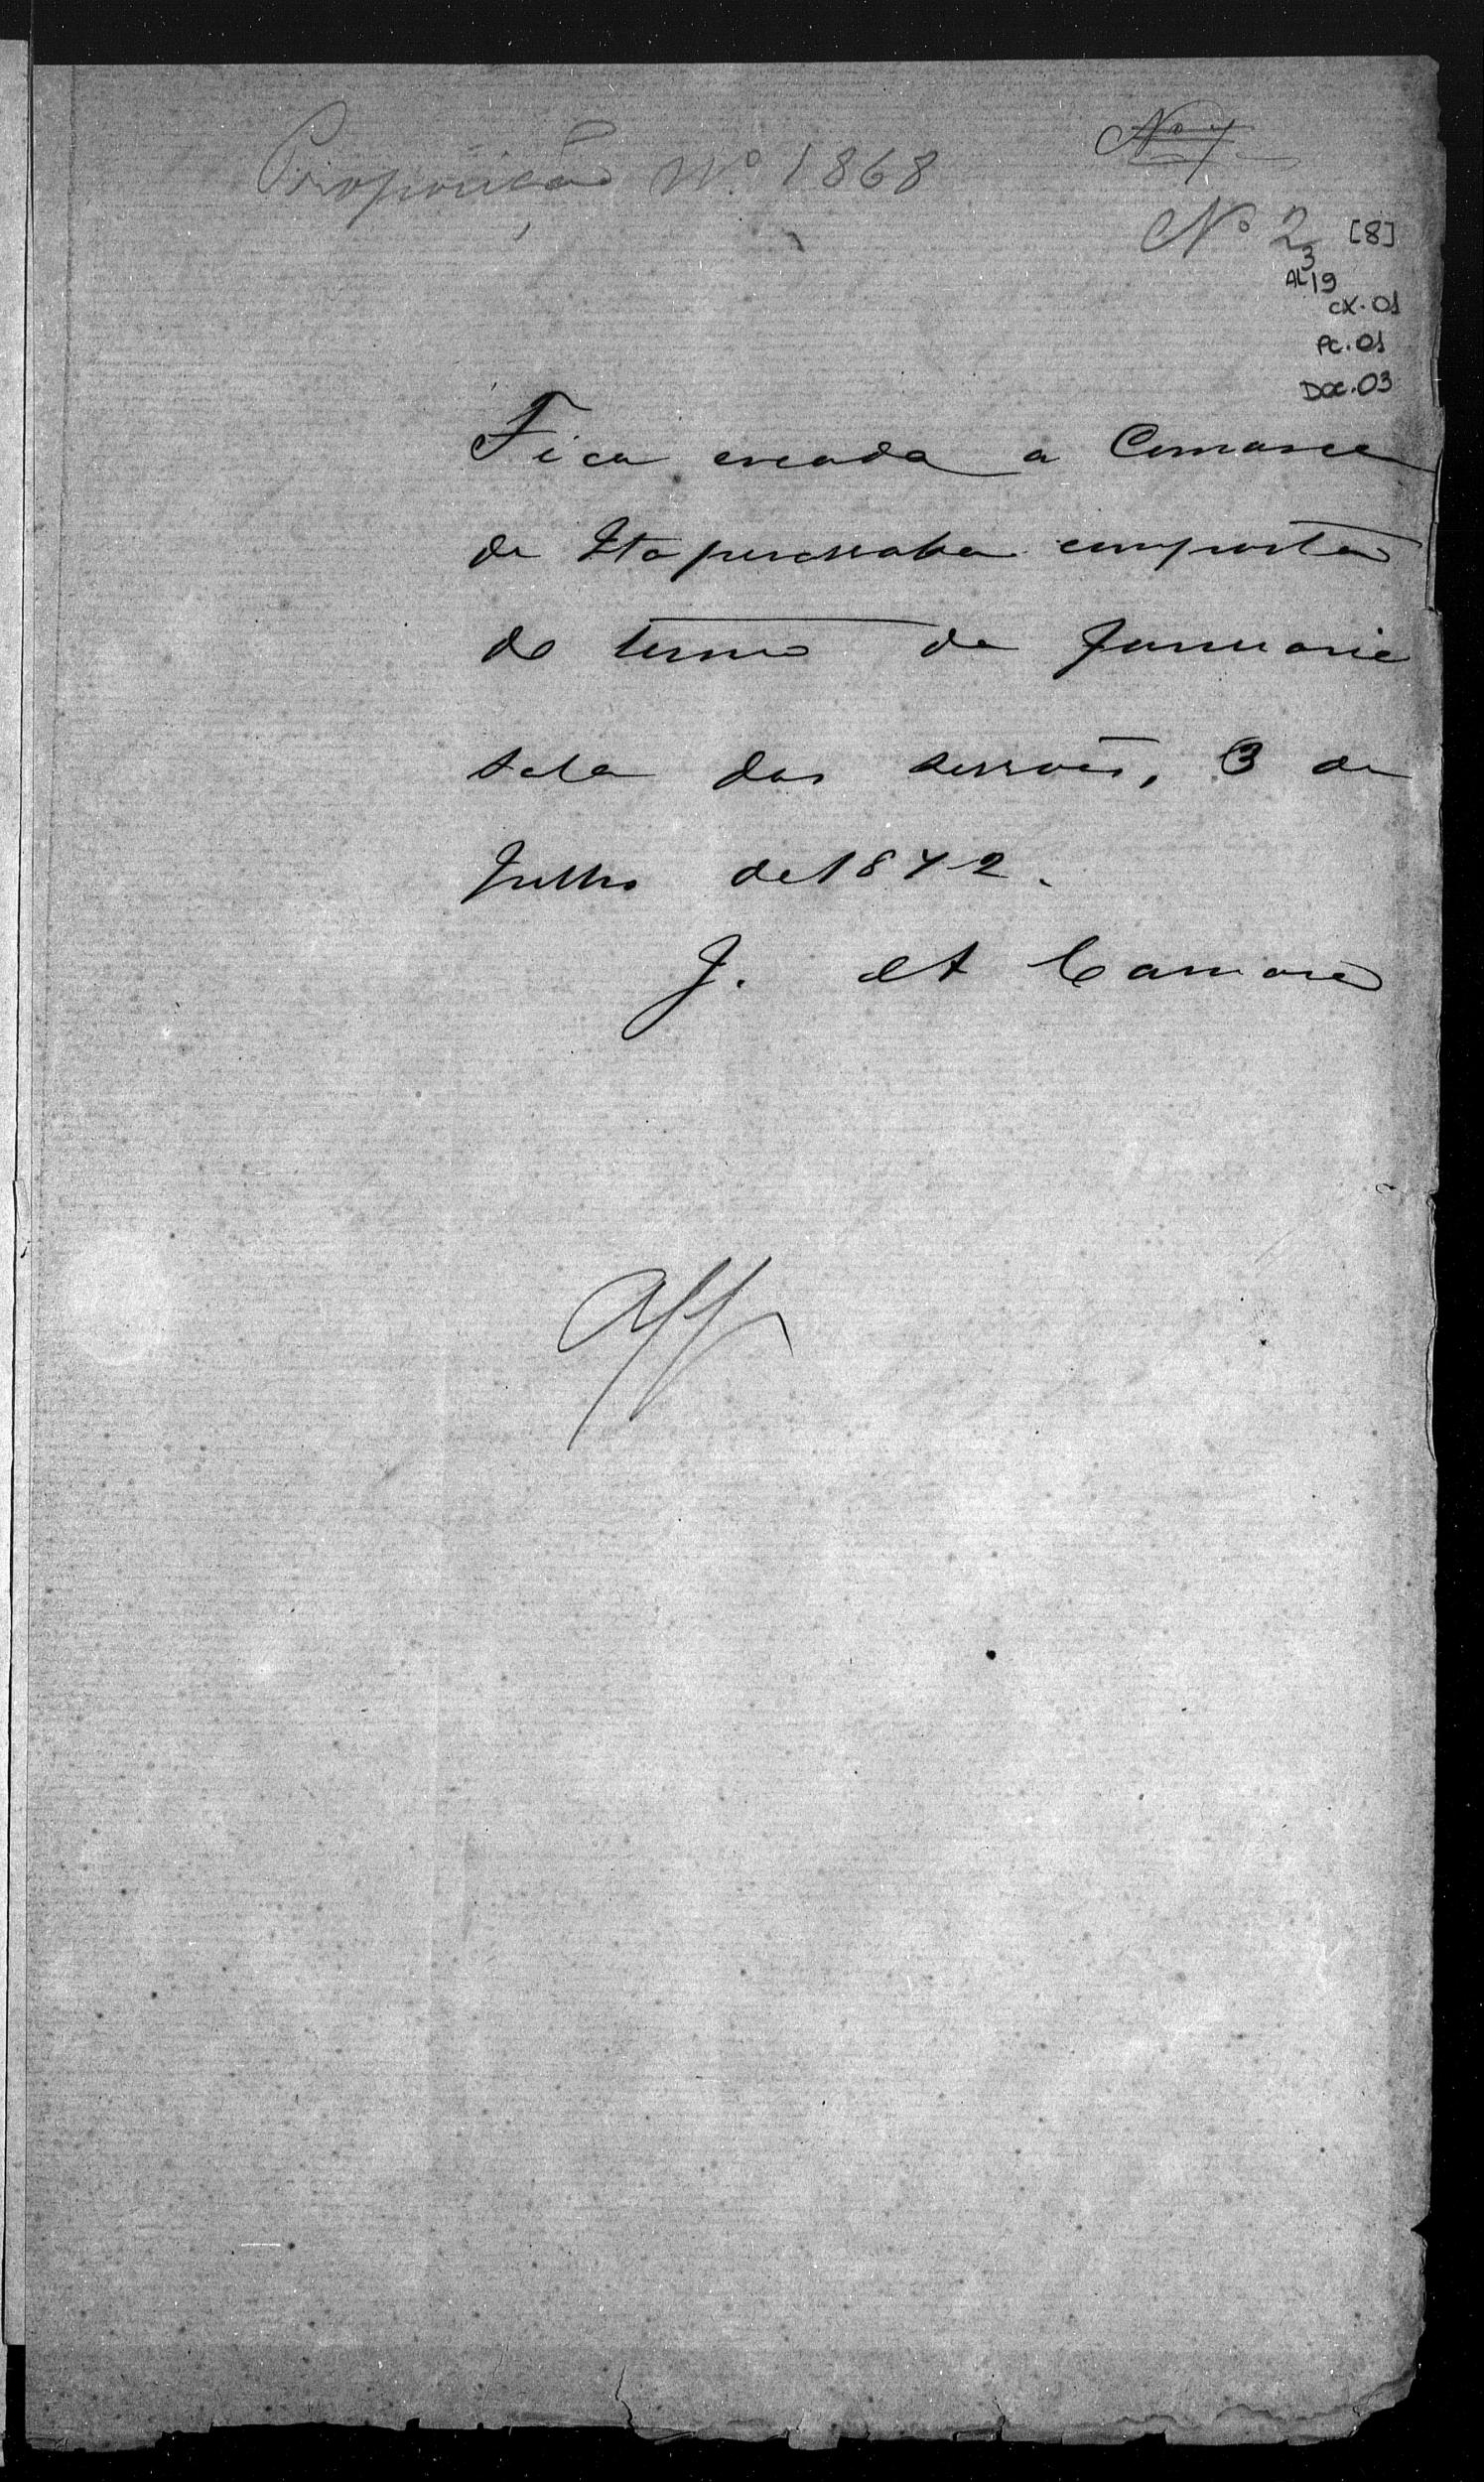 Proposição Nº 1868
Nº 7
Nº 2 [8]
3
AL 19
CX.01
PC.01
DOC.03
Fica creada a Comarca
de Itapirassaba composta
do termo da Januaria
Sala das sessões, 3 de
Julho de 1872.
J. A Camara